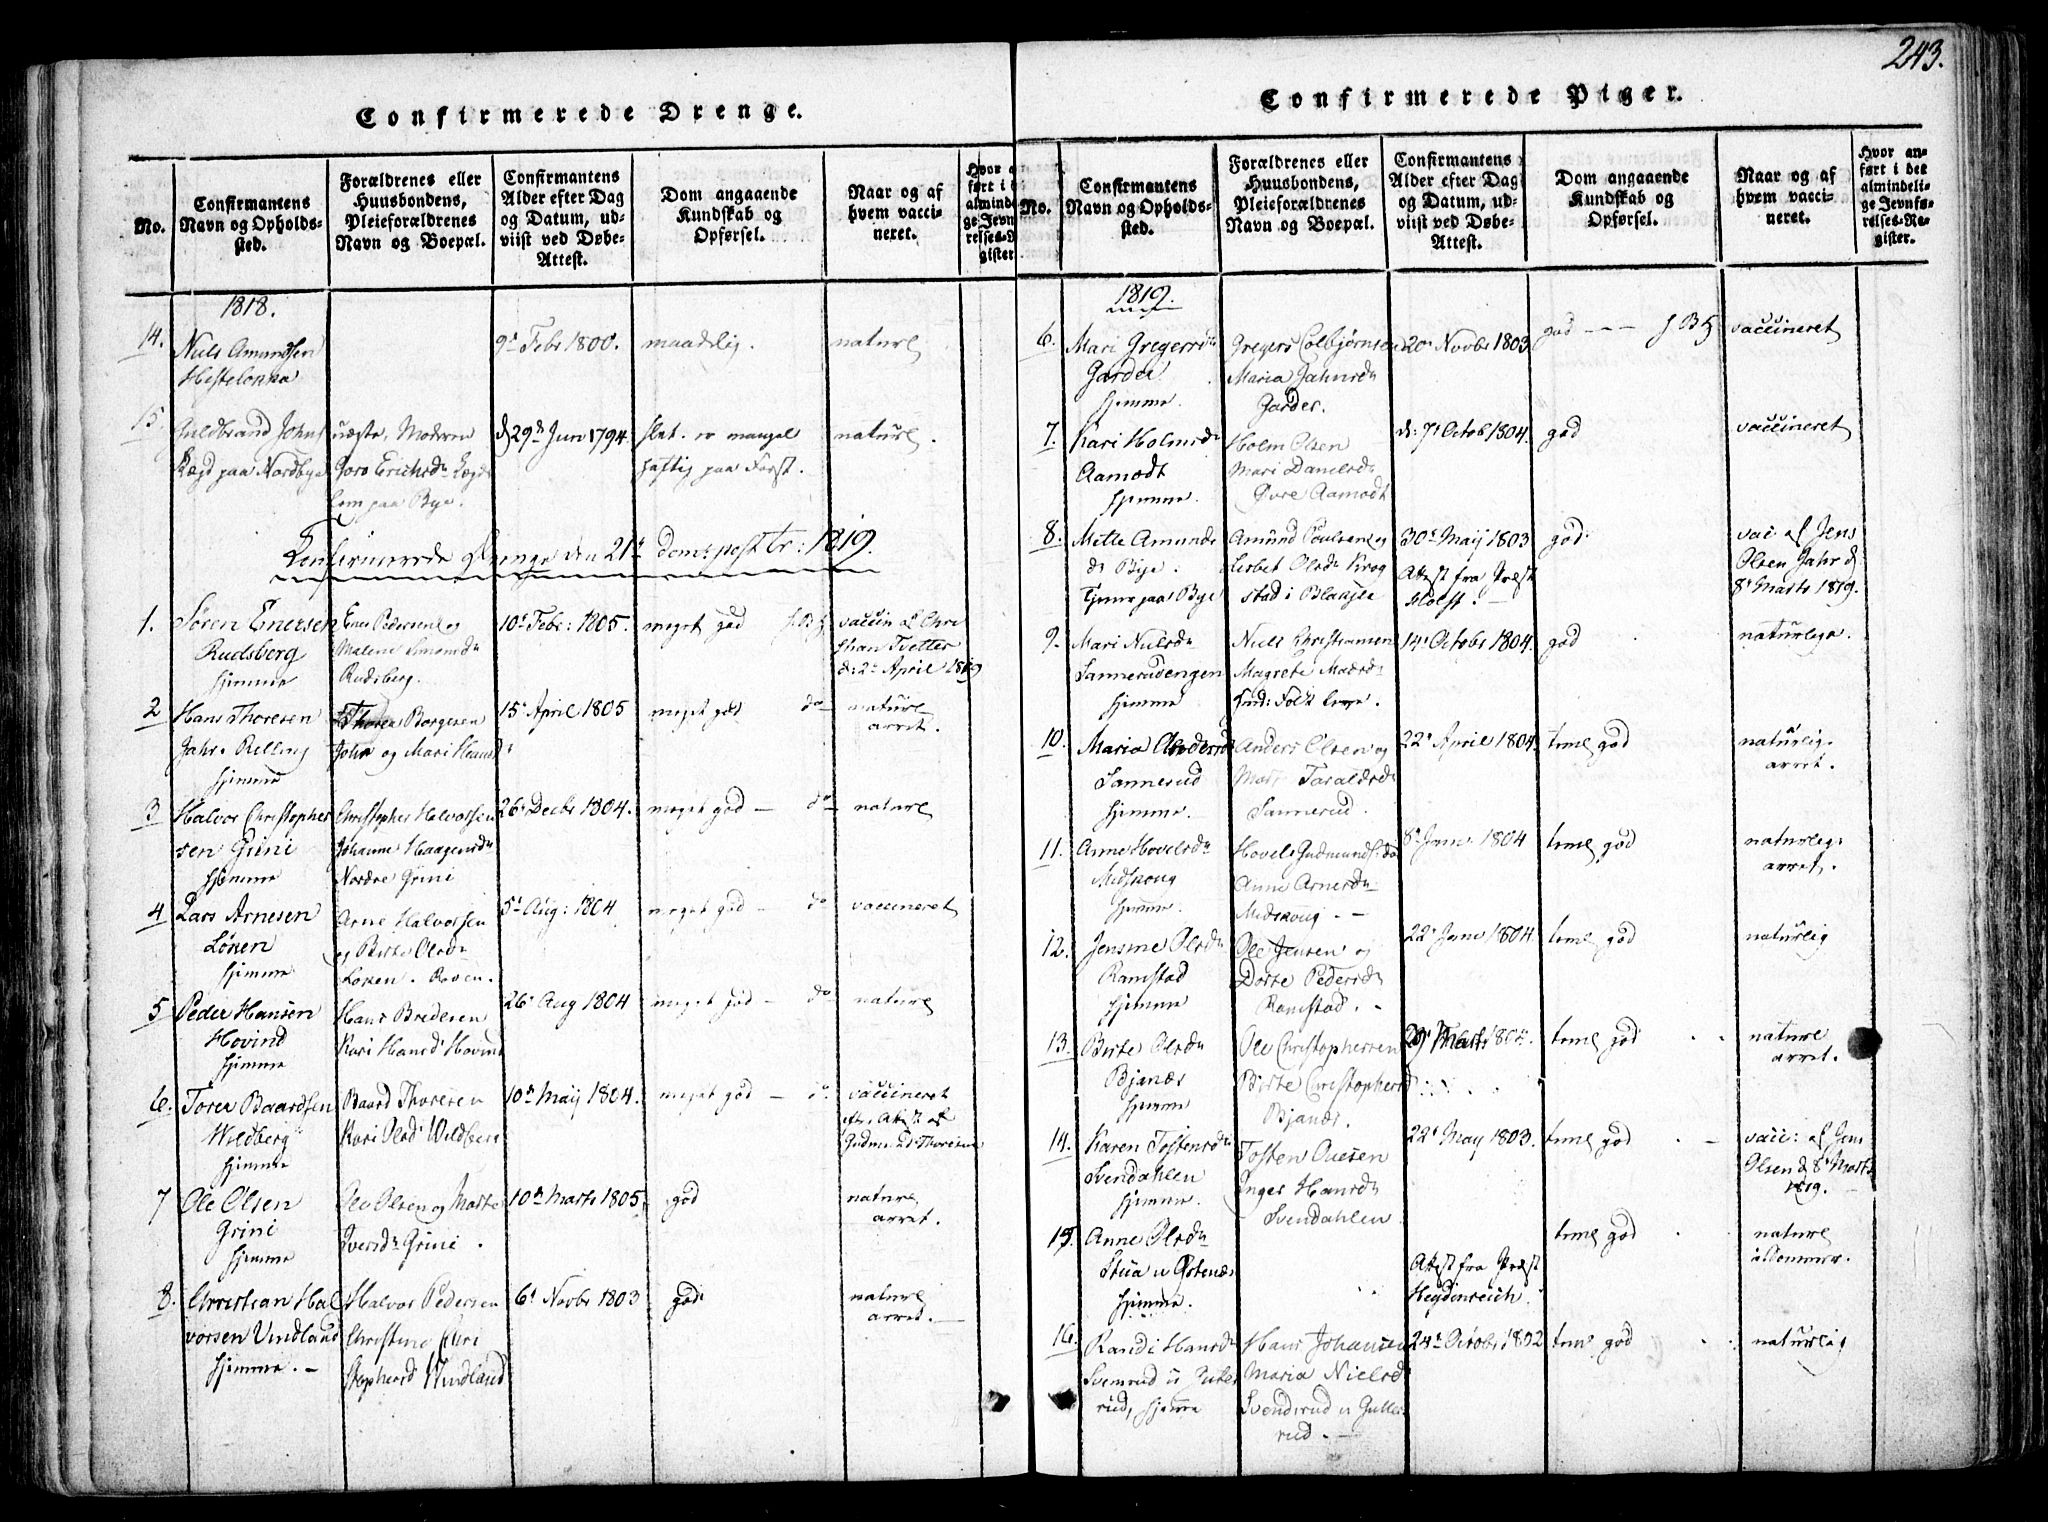 243.
Confirmerede Drenge.
No.
Confirmantens
Navn og Opholds-
sted.
Forældrenes eller
Huusbondens,
Pleieforældrenes
Navn og Boepæl.
Confirmantens
Alder efter Dag
og Datum, ud-
viist ved Døbe-
Attest.
Dom angaaende
Kundskab og
Opførsel.
Naar og af
hvem vacci-
neret.
1818.
14.
Niels Amundsen
9de Febr 1800.
maadelig.
naturl
15.
Guldbrand Johns
Lægd paa Nordbye
uægte, Moderen
Goro Erichsdr Lægds
lem paa Bye.
d 29de Jun 1794.
slet. er mangel
haftig paa Forst.
naturl.
Confirmerede Drenge den 21de Dom: post tr: 1819.
1.
Søren Enersen
Rudsberg
hjemme
Ener Pedersen og
Malene Simensdr
Rudsberg.
10de Febr: 1805.
meget god
vaccin af Chri
stian Tvetter
d: 2de April 1819
2
Hans Thoresen
Jahr. Relling
hjemme
Thore Borgersen
Jahr og Mari Hansd
15de April 1805
meget god
do
naturl
arret.
3
Halvor Christopher
sen Grini
hjemme
Christopher Halvorsen
Johanne Haagensdr
Nordre Grini
26de Decbr 1804.
meget god
do
naturl
4
Lars Arnesen
Løken
hjemme
Arne Halvorsen
og Berte Olsdr
Løken.
5de Aug: 1804
meget god
do
vaccineret
5
Peder Hansen
Hovind
hjemme
Hans Bredesen
Kari Hansd Hovind
26de Aug 1804
meget god
do
naturl
6.
Torer Baardsen
Wildberg
hjemme
Baard Thoresen
Kari Olsd Wildberg
10de Maij 1804.
meget god
do
vaccineret
eft. Attest af
Gudmund Thoresen
7
Ole Olsen
Grini
hjemme
Ole Olsen og Marte
Iversdr Grini.
10de Marts 1805.
god
naturl
arret.
8.
Christian Hal
vorsen Vindland
hjemme.
Halvor Pedersen
Christine Kari
Stephensd Windland
6de Novbr 1803
god
naturl
arret.
Confirmerede Piger.
No.
Confirmantens
Navn og Opholds-
sted.
Forældrenes eller
Huusbondens,
Pleieforældrenes
Navn og Boepæl.
Confirmantens
Alder efter Dag
og Datum, ud-
viist ved Døbe-
Attest.
Dom angaaende
Kundskab og
Opførsel.
Naar og af
hvem vacci-
neret.
Hvor an-
ført i det
almindeli-
ge Jevnfø-
relses-Re-
gister.
1819.
6.
Mari Gregersdr
Garder
hjemme.
Gregers Colbjørnsen
Maria Jahnsdr
Garder.
20de Novbr 1803
god
vaccineret
7.
Kari Holmsdr
Aamodt
hjemme.
Holm Olsen
Mari Danielsdr
Øvre Aamodt
d: 7de Octob 1804.
god
vaccineret
8.
Mette Amunds
dr Bye.
Tjener paa Bye
Amund Poulsen og
Lisbet Olsdr Krog
stad i Blakjer
30de Maij 1803
Attest fra Præst
Holst.
god
vac: af Jens
Olsen Jahr d:
8de Marts 1819.
9.
Mari Nielsdr
Sannerudengen
hjemme
Niels Christiansen
Magrete Madsdr
14de Octobr 1804.
god
naturlige.
10.
Maria Andersd
Sannerud
hjemme.
Anders Olsen og
Mari Taraldsdr
Sannerud.
22de April 1804.
teml god
naturlig.
arret.
11.
Anne Hovelsdr
Midskoug
hjemme.
Hovel Gudmunds:
Anne Arnesdr
Midskoug.
8de Janv. 1804
teml god
naturlig:
arret.
12.
Jensine Olsdr
Ramstad
hjemme
Ole Jensen og
Dorte Pedersdr
Ramstad.
22de Janv 1804.
teml god
naturlig
13.
Berte Olsdr
Bjanæs
hjemme
Ole Christophersen
Berte Christophersd
Bjanæs.
teml god
naturl
arret.
14.
Karen Tostensdr
Svendahlen
hjemme.
Tosten Ouesen
Inger Hansdr
Svendahlen
22de May 1803.
teml god
vacc: af Jens
Olsen d 8de Marts
1819.
15.
Anne Olsdr
Stua u Østenæs
hjemme.
Attest fra Præst
Heydenreich.
teml god
naturl
16.
Randi Hansdr
hjemme
Hans Johansen
Maria Nielsd
Svendsrud u Gulle
rud.
24de Octobr 1802
teml god
naturlig